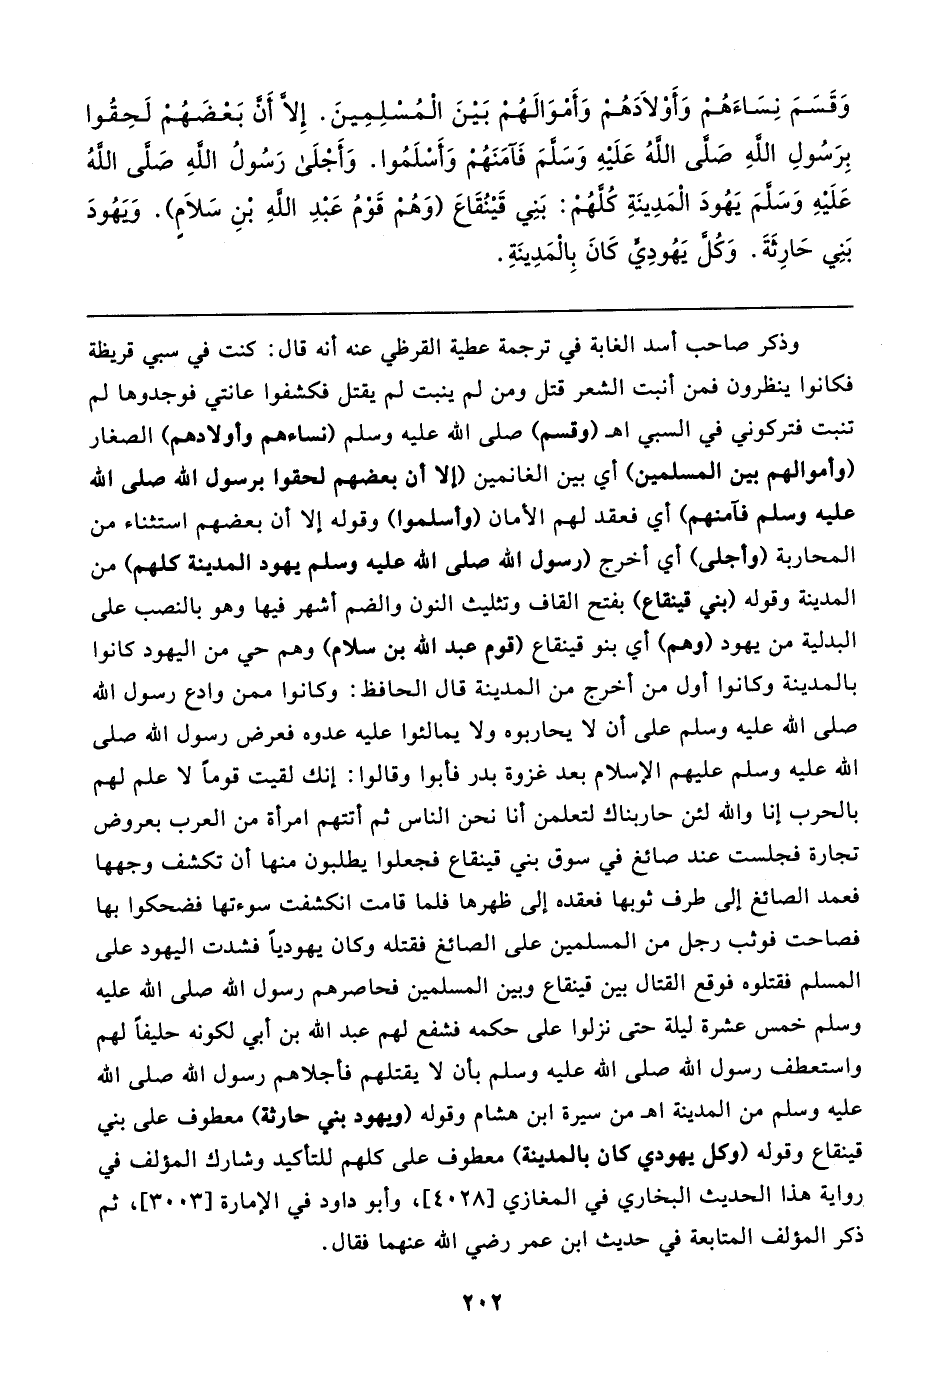 وَقَسَمَ نِسَاءَهُمْ وَأَوْلَادَهُمْ وَأَمْوَالَهُمْ بَيْنَ الْمُسْلِمِينَ. إِلاَّ أَنَّ بَعْضَهُمْ لَحِقُوا
بِرَسُولِ اللَّهِ صَلَّى اللَّهُ عَلَيْهِ وَسَلَّمَ فَآمَنَهُمْ وَأَسْلَمُوا. وَأَجْلَىٰ رَسُولُ اللَّهِ صَلَّى اللَّهُ
عَلَيْهِ وَسَلَّمَ يَهُودَ الْمَدِينَةِ كُلَّهُمْ: بَنِي قَيْنُقَاعَ (وَهُمْ قَوْمُ عَبْدِ اللَّهِ بْنِ سَلاَمٍ). وَيَهُودَ
بَنِي حَارِثَةَ. وَكُلَّ يَهُودِيٍّ كَانَ بِالْمَدِينَةِ.
وذكر صاحب أسد الغابة في ترجمة عطية القرظي عنه أنه قال: كنت في سبي قريظة
فكانوا ينظرون فمن أنبت الشعر قتل ومن لم ينبت لم يقتل فكشفوا عانتي فوجدوها لم
تنبت فتركوني في السبي اهـ (وقسم) صلى الله عليه وسلم (نساءهم وأولادهم) الصغار
(وأموالهم بين المسلمين) أي بين الغانمين (إلا أن بعضهم لحقوا برسول الله صلى الله
عليه وسلم فآمنهم) أي فعقد لهم الأمان (وأسلموا) وقوله إلا أن بعضهم استثناء من
المحاربة (وأجلى) أي أخرج (رسول الله صلى الله عليه وسلم يهود المدينة كلهم) من
المدينة وقوله (بني قينقاع) بفتح القاف وتثليث النون والضم أشهر فيها وهو بالنصب على
البدلية من يهود (وهم) أي بنو قينقاع (قوم عبد الله بن سلام) وهم حي من اليهود كانوا
بالمدينة وكانوا أول من أخرج من المدينة قال الحافظ: وكانوا ممن وادع رسول الله
صلى الله عليه وسلم على أن لا يحاربوه ولا يمالئوا عليه عدوه فعرض رسول الله صلى
الله عليه وسلم عليهم الإسلام بعد غزوة بدر فأبوا وقالوا: إنك لقيت قوماً لا علم لهم
بالحرب إنا والله لئن حاربناك لتعلمن أنا نحن الناس ثم أتتهم امرأة من العرب بعروض
تجارة فجلست عند صائغ في سوق بني قينقاع فجعلوا يطلبون منها أن تكشف وجهها
فعمد الصائغ إلى طرف ثوبها فعقده إلى ظهرها فلما قامت انكشفت سوءتها فضحكوا بها
فصاحت فوثب رجل من المسلمين على الصائغ فقتله وكان يهودياً فشدت اليهود على
المسلم فقتلوه فوقع القتال بين قينقاع وبين المسلمين فحاصرهم رسول الله صلى الله عليه
وسلم خمس عشرة ليلة حتى نزلوا على حكمه فشفع لهم عبد الله بن أبي لكونه حليفاً لهم
واستعطف رسول الله صلى الله عليه وسلم بأن لا يقتلهم فأجلاهم رسول الله صلى الله
عليه وسلم من المدينة اهـ من سيرة ابن هشام وقوله (ويهود بني حارثة) معطوف على بني
قينقاع وقوله (وكل يهودي كان بالمدينة) معطوف على كلهم للتأكيد وشارك المؤلف في
رواية هذا الحديث البخاري في المغازي [٤٠٢٨]، وأبو داود في الإمارة [٣٠٠٣]، ثم
ذكر المؤلف المتابعة في حديث ابن عمر رضي الله عنهما فقال.
٢٠٢